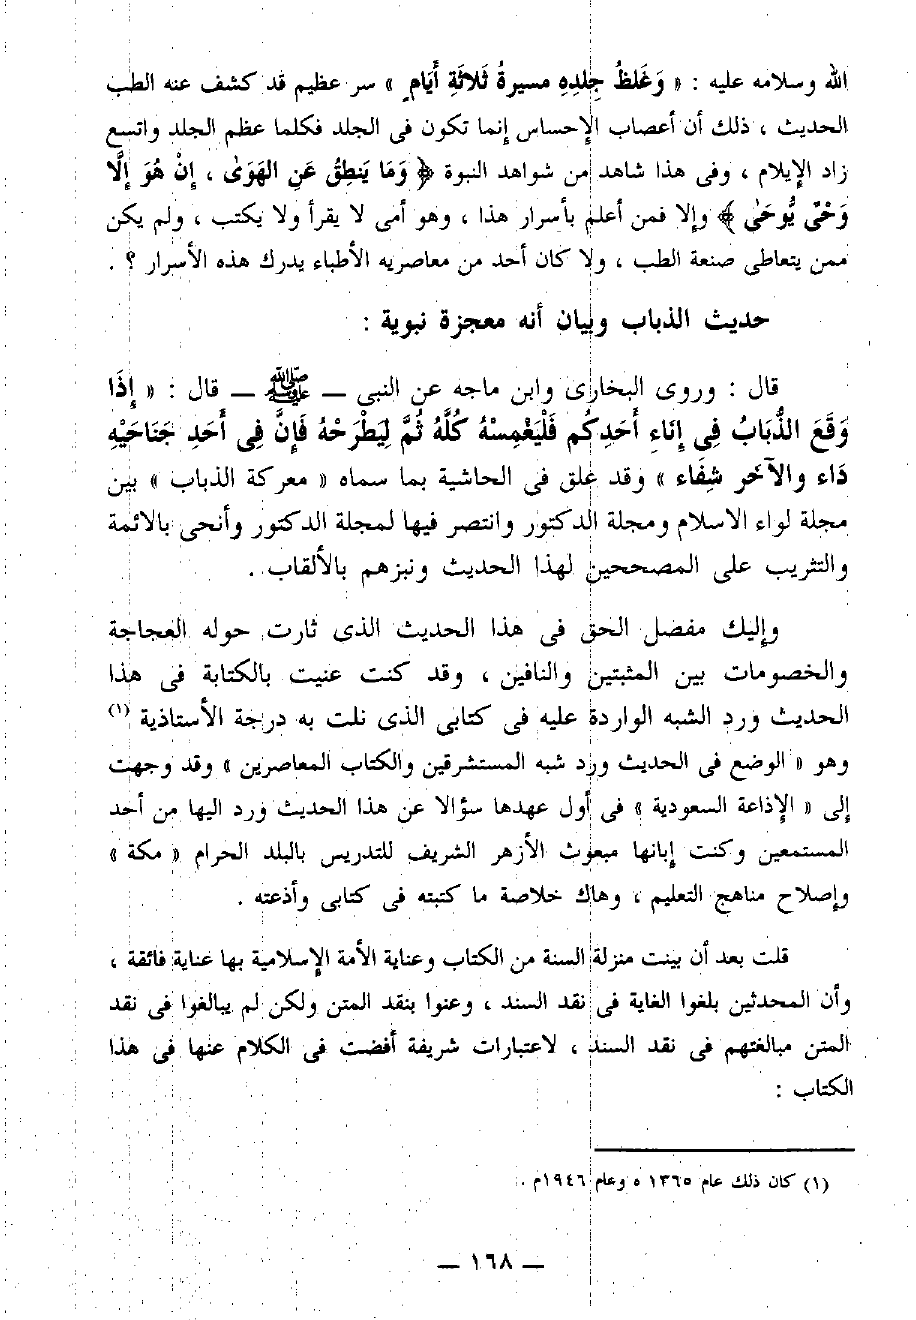 الله وسلامه عليه : « وَغَلظُ جِلدِهِ مسيرةُ ثَلاثَةِ أَيَامٍ » سر عظيم قد كشف عنه الطب
الحديث ، ذلك أن أعصاب الإحساس إنما تكون فى الجلد فكلما عظم الجلد واتسع
زاد الإيلام ، وفى هذا شاهد من شواهد النبوة ﴿ وَمَا يَنطِقُ عَنِ الهَوَىٰ ، إِنْ هُوَ إِلَّا
وَحْىٌ يُّوحَىٰ ﴾ وإلا فمن أعلم بأسرار هذا ، وهو أمى لا يقرأ ولا يكتب ، ولم يكن
ممن يتعاطى صنعة الطب ، ولا كان أحد من معاصريه الأطباء يدرك هذه الأسرار ؟ .
حديث الذباب وبيان أنه معجزة نبوية :
قال : وروى البخارى وابن ماجه عن النبى ــ ﷺ ــ قال : « إِذَا
وَقَعَ الذُّبَابُ فِى إِنَاءِ أَحَدِكُم فَلْيَغْمِسْهُ كُلَّهُ ثُمَّ لِيَطْرَحْهُ فَإِنَّ فِى أَحَدِ جَنَاحَيْهِ
دَاء والآخر شِفَاء » وقد علق فى الحاشية بما سماه « معركة الذباب » بين
مجلة لواء الاسلام ومجلة الدكتور وانتصر فيها لمجلة الدكتور وأنحى بالائمة
والتثريب على المصححين لهذا الحديث ونبزهم بالألقاب .
وإليك مفصل الحق فى هذا الحديث الذى ثارت حوله العجاجة
والخصومات بين المثبتين والنافين ، وقد كنت عنيت بالكتابة فى هذا
الحديث ورد الشبه الواردة عليه فى كتابى الذى نلت به درجة الأستاذية (١)
وهو « الوضع فى الحديث ورد شبه المستشرقين والكتاب المعاصرين » وقد وجهت
إلى « الإذاعة السعودية » فى أول عهدها سؤالا عن هذا الحديث ورد اليها من أحد
المستمعين وكنت إبانها مبعوث الأزهر الشريف للتدريس بالبلد الحرام « مكة »
وإصلاح مناهج التعليم ، وهاك خلاصة ما كتبته فى كتابى وأذعته .
قلت بعد أن بينت منزلة السنة من الكتاب وعناية الأمة الإسلامية بها عناية فائقة ،
وأن المحدثين بلغوا الغاية فى نقد السند ، وعنوا بنقد المتن ولكن لم يبالغوا فى نقد
المتن مبالغتهم فى نقد السند ، لاعتبارات شريفة أفضت فى الكلام عنها فى هذا
الكتاب :
(١) كان ذلك عام ١٣٦٥ ه وعام ١٩٤٦م .
ــ ١٦٨ ــ